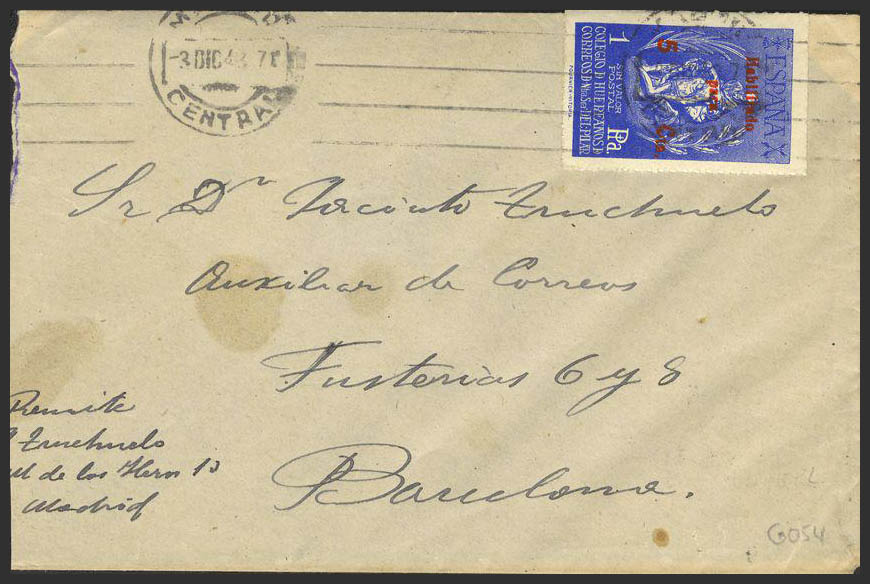 -3 DIC 43 7T
CENTRAL
ESPAÑA
Habilitado
para
5 Cts.
1 Pta.
SIN VALOR
POSTAL
COLEGIO D HUERFANOS D
CORREOS D
DEL PILAR
Sr Dn Jacinto Truchuelo
Auxiliar de Correos
Fusterias 6 y 8
Barcelona.
Remite
Truchuelo
de los Heros 13
Madrid
G054